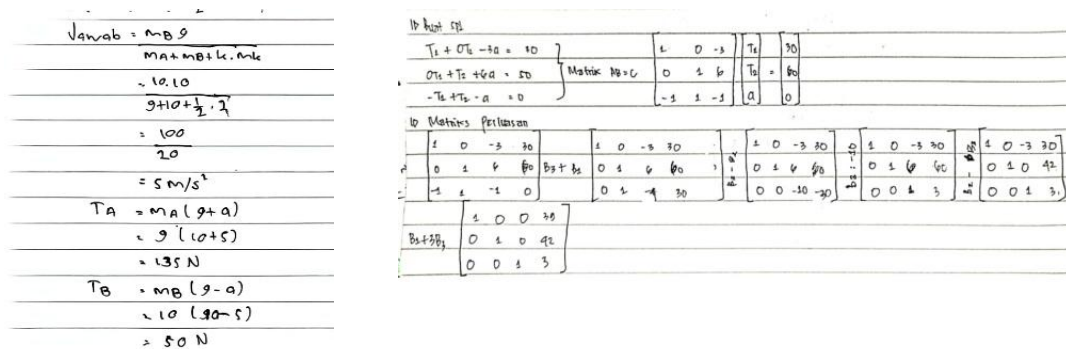 Jawab = mB g
mA + mB + k . mk
= 10.10
9+10+ 1/2 . 2
= 100
20
= 5 m/s²
TA = mA (g+a)
= 9 (10+5)
= 135 N
TB = mB (g-a)
= 10 (10-5)
= 50 N
T1 + 0T2 - 3a = 30
0T1 + T2 + 6a = 50
-T1 + T2 - a = 0
Matrix AB = C
1 0 -3
0 1 6
-1 1 -1
T1
T2
a
=
30
60
0
Matriks Perluasan
1 0 -3 30
0 1 6 60
-1 1 -1 0
B3 + B1
1 0 -3 30
0 1 6 60
0 1 -4 30
1 0 -3 30
0 1 6 60
0 0 -10 -30
1 0 -3 30
0 1 6 60
0 0 1 3
1 0 -3 30
0 1 0 42
0 0 1 3
B1 + 3B3
1 0 0 39
0 1 0 42
0 0 1 3